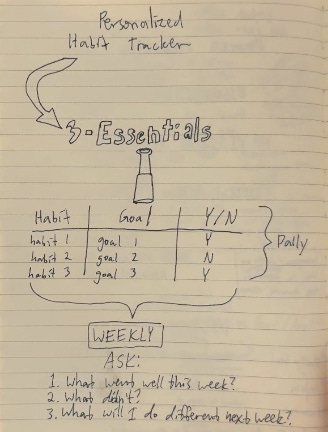 Personalized
Habit Tracker
3-Essentials
Habit Goal Y/N
habit 1 goal 1 Y
habit 2 goal 2 N
habit 3 goal 3 Y
Daily
WEEKLY
ASK:
1. What went well this week?
2. What didn't?
3. What will I do different next week?